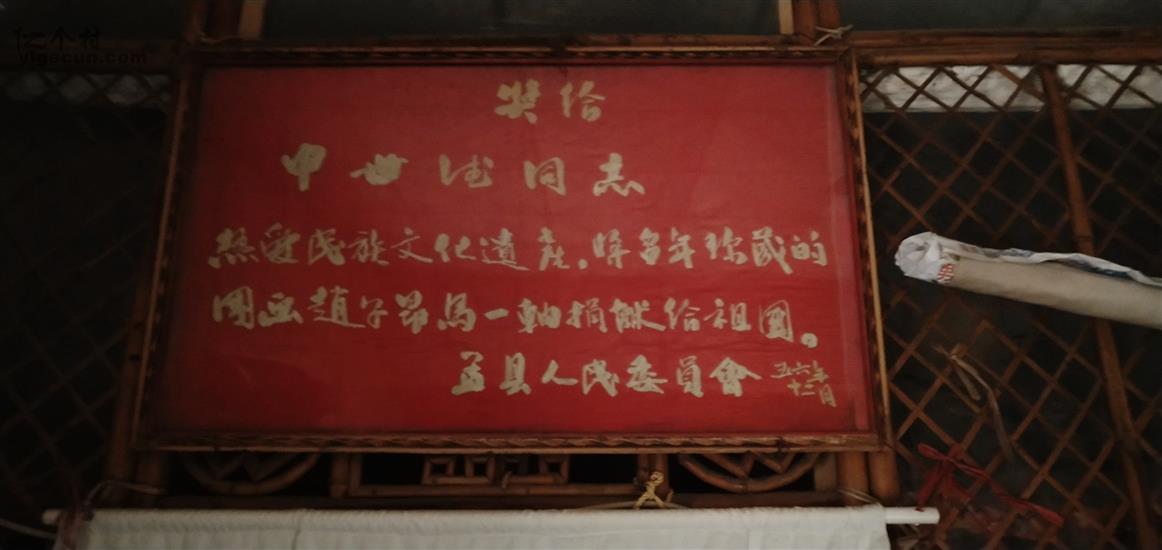 亿个村
Yigecun.com
奖给
申世同志
热爱民族文化遗产,将多年珍藏的
国画趙子昂馬一軸捐献给祖國。
县人民委員會 五六年
十二月